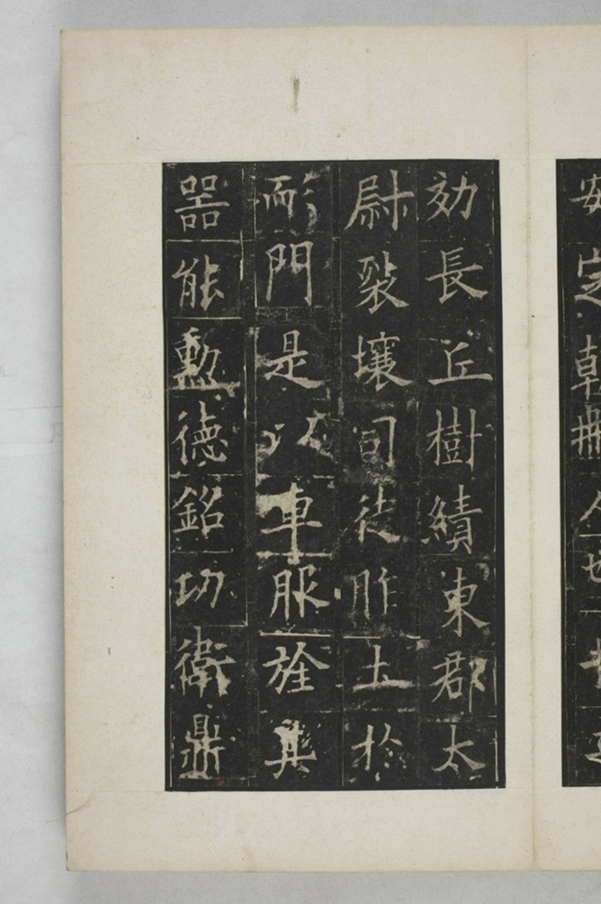 安定朝那人也
効長丘樹績東郡太
尉裂壤司徒胙土於
耏門是以車服旌其
器能勲德銘功衛鼎